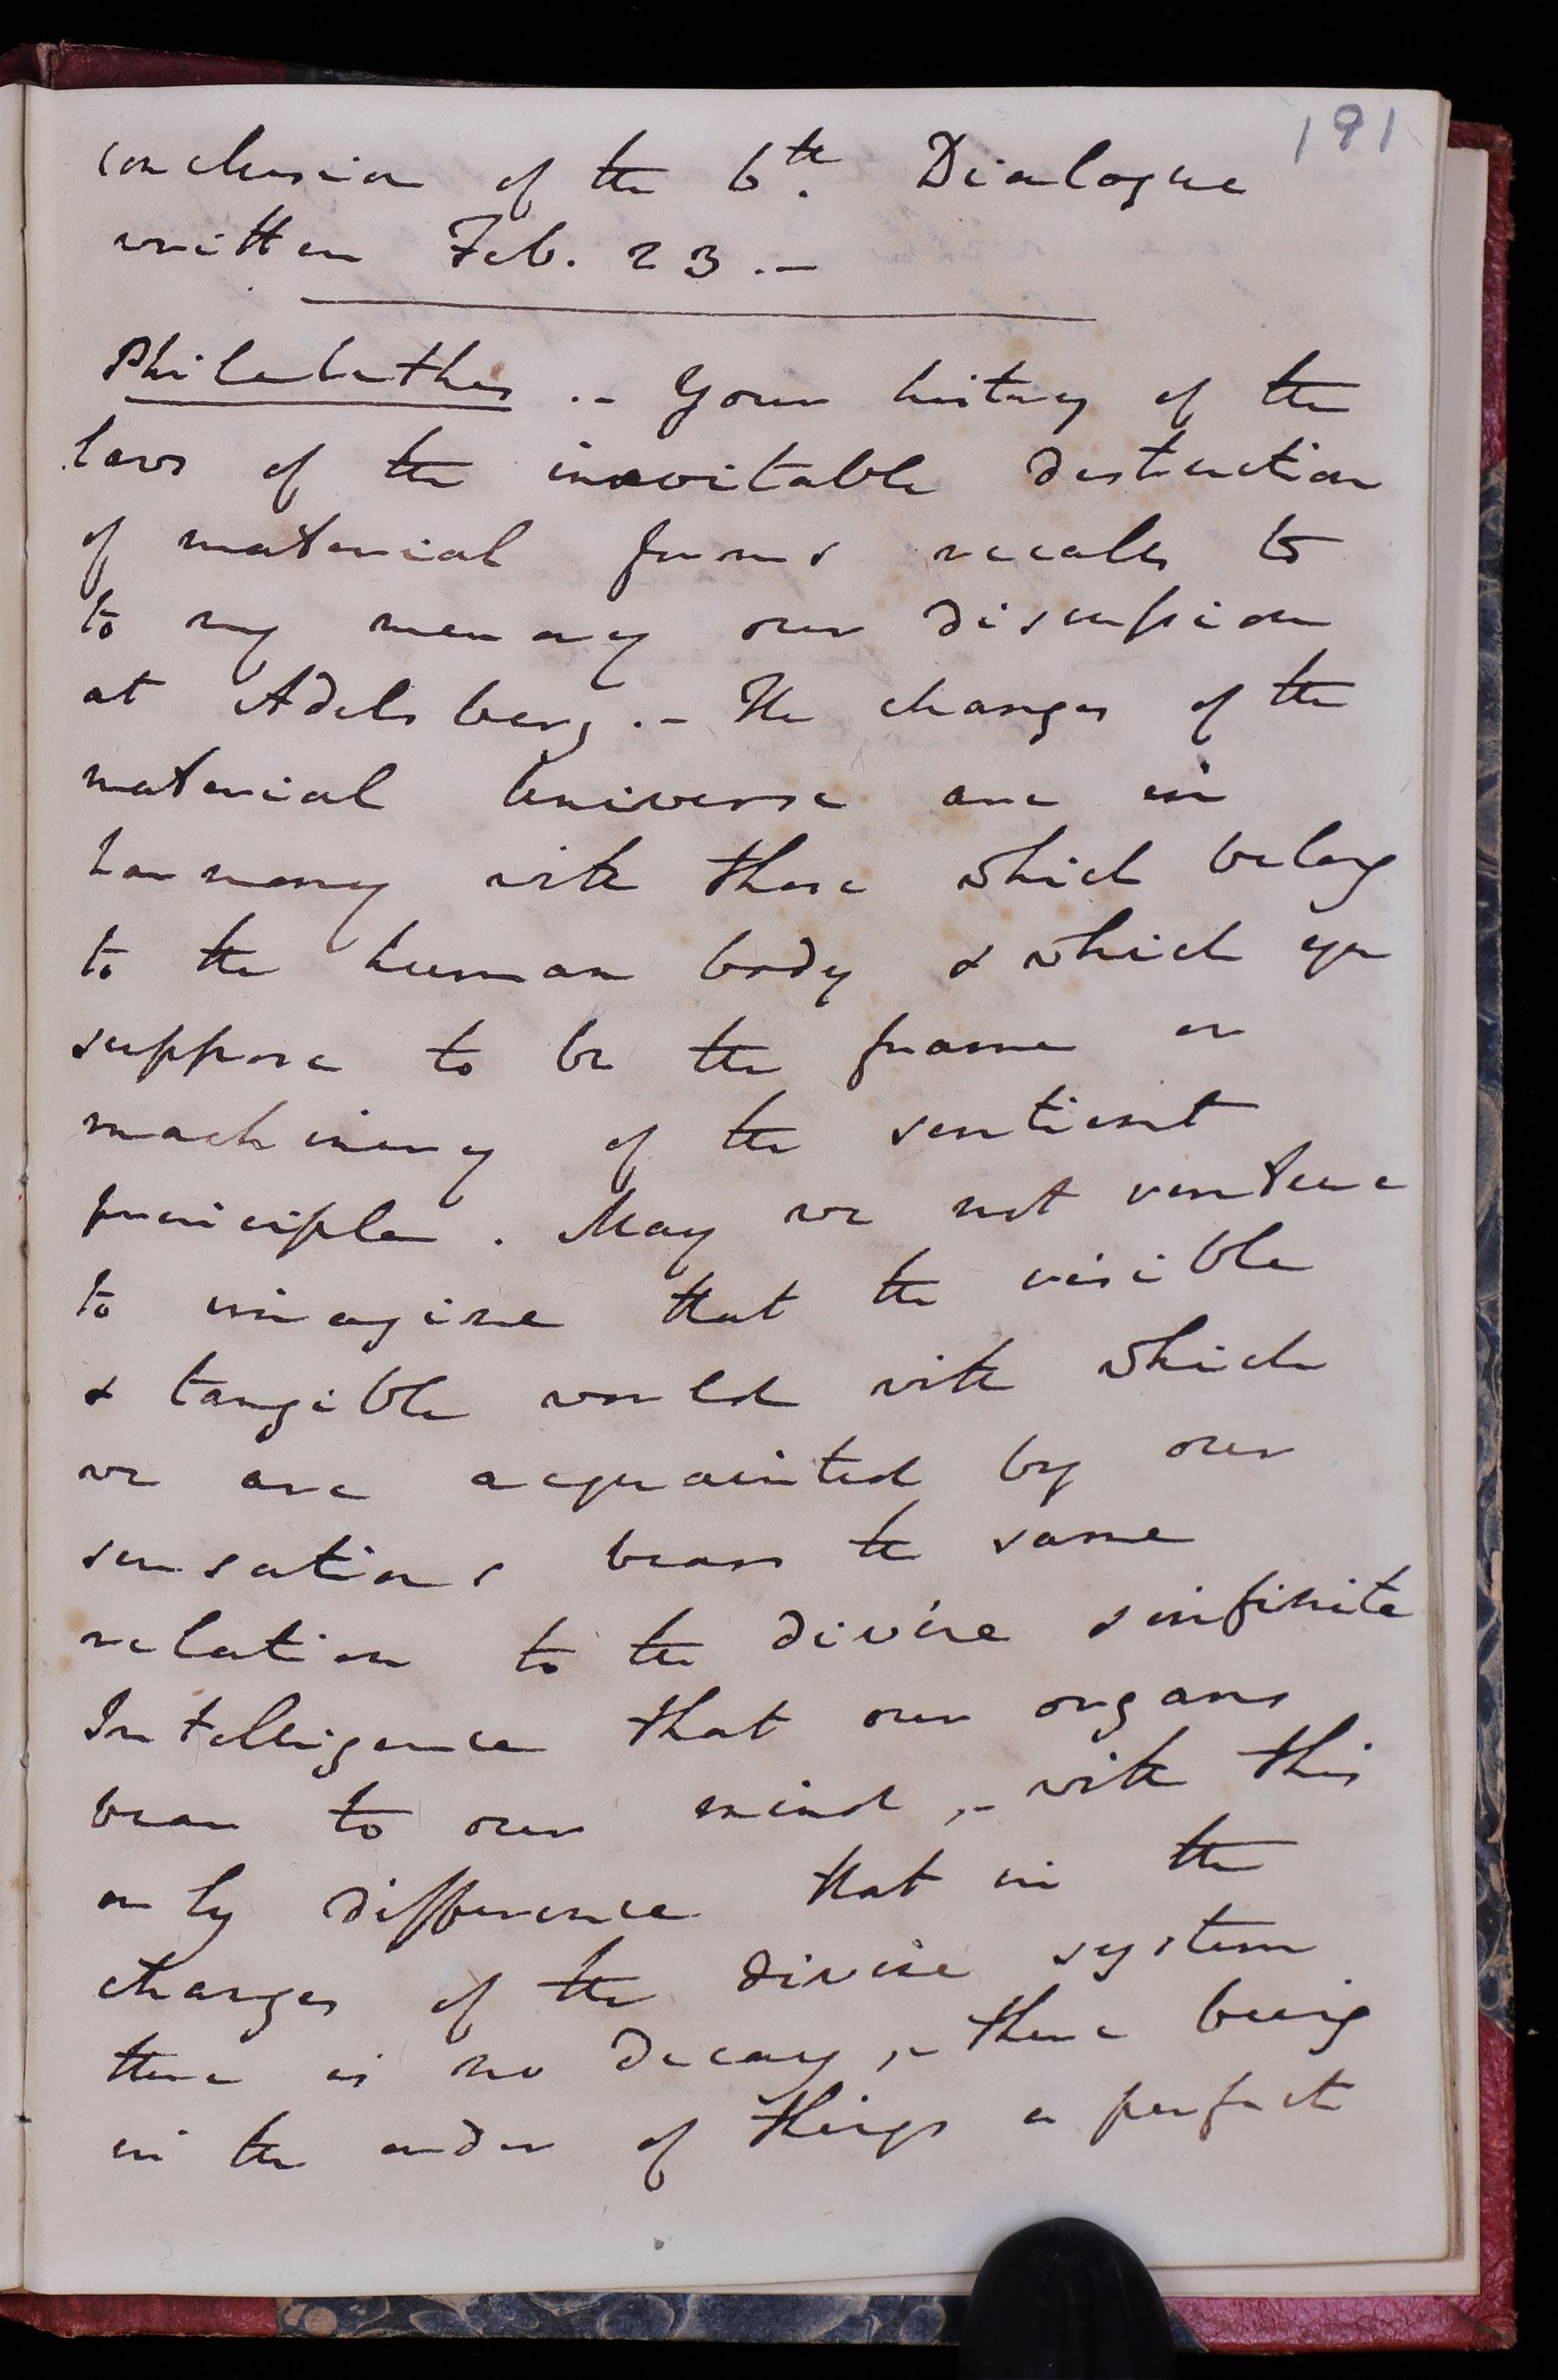 191
conclusion of the 6th. Dialogue
written Feb. 23.–
Philalethes .– Your history of the
laws of the inevitable destruction
of material forms recalls to
to my memory our discussion
at Adelsberg.– The changes of the
material Universe are in
harmony with those which belong
to the human body & which you
suppose to be the frame or
machinery of the sentient
principle. May we not venture
to imagine that the visible
& tangible world with which
we are acquainted by our
sensations bears the same
relation to the divine & infinite
Intelligence that our organs
bear to our mind,– with this
only difference that in the
changes of the divine system
there is no decay,– there being
in the order of things a perfect